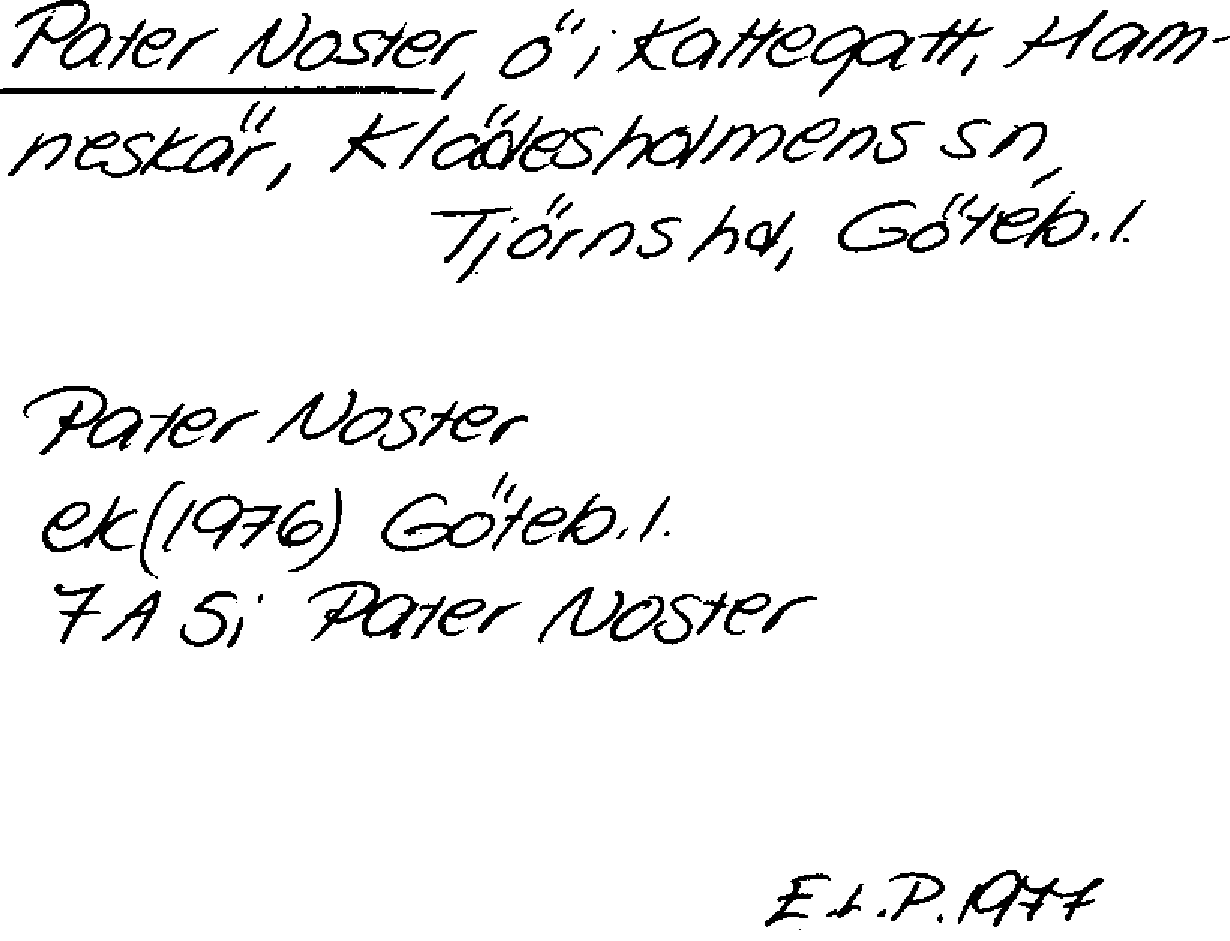 Pater Noster, ö i Kattegatt, Ham-
neskär, Klädesholmens sn,
Tjörns hd, Göteb.l.
Pater Noster
ek(1976) Göteb.l.
7A Si Pater Noster
E.L.P. 1977